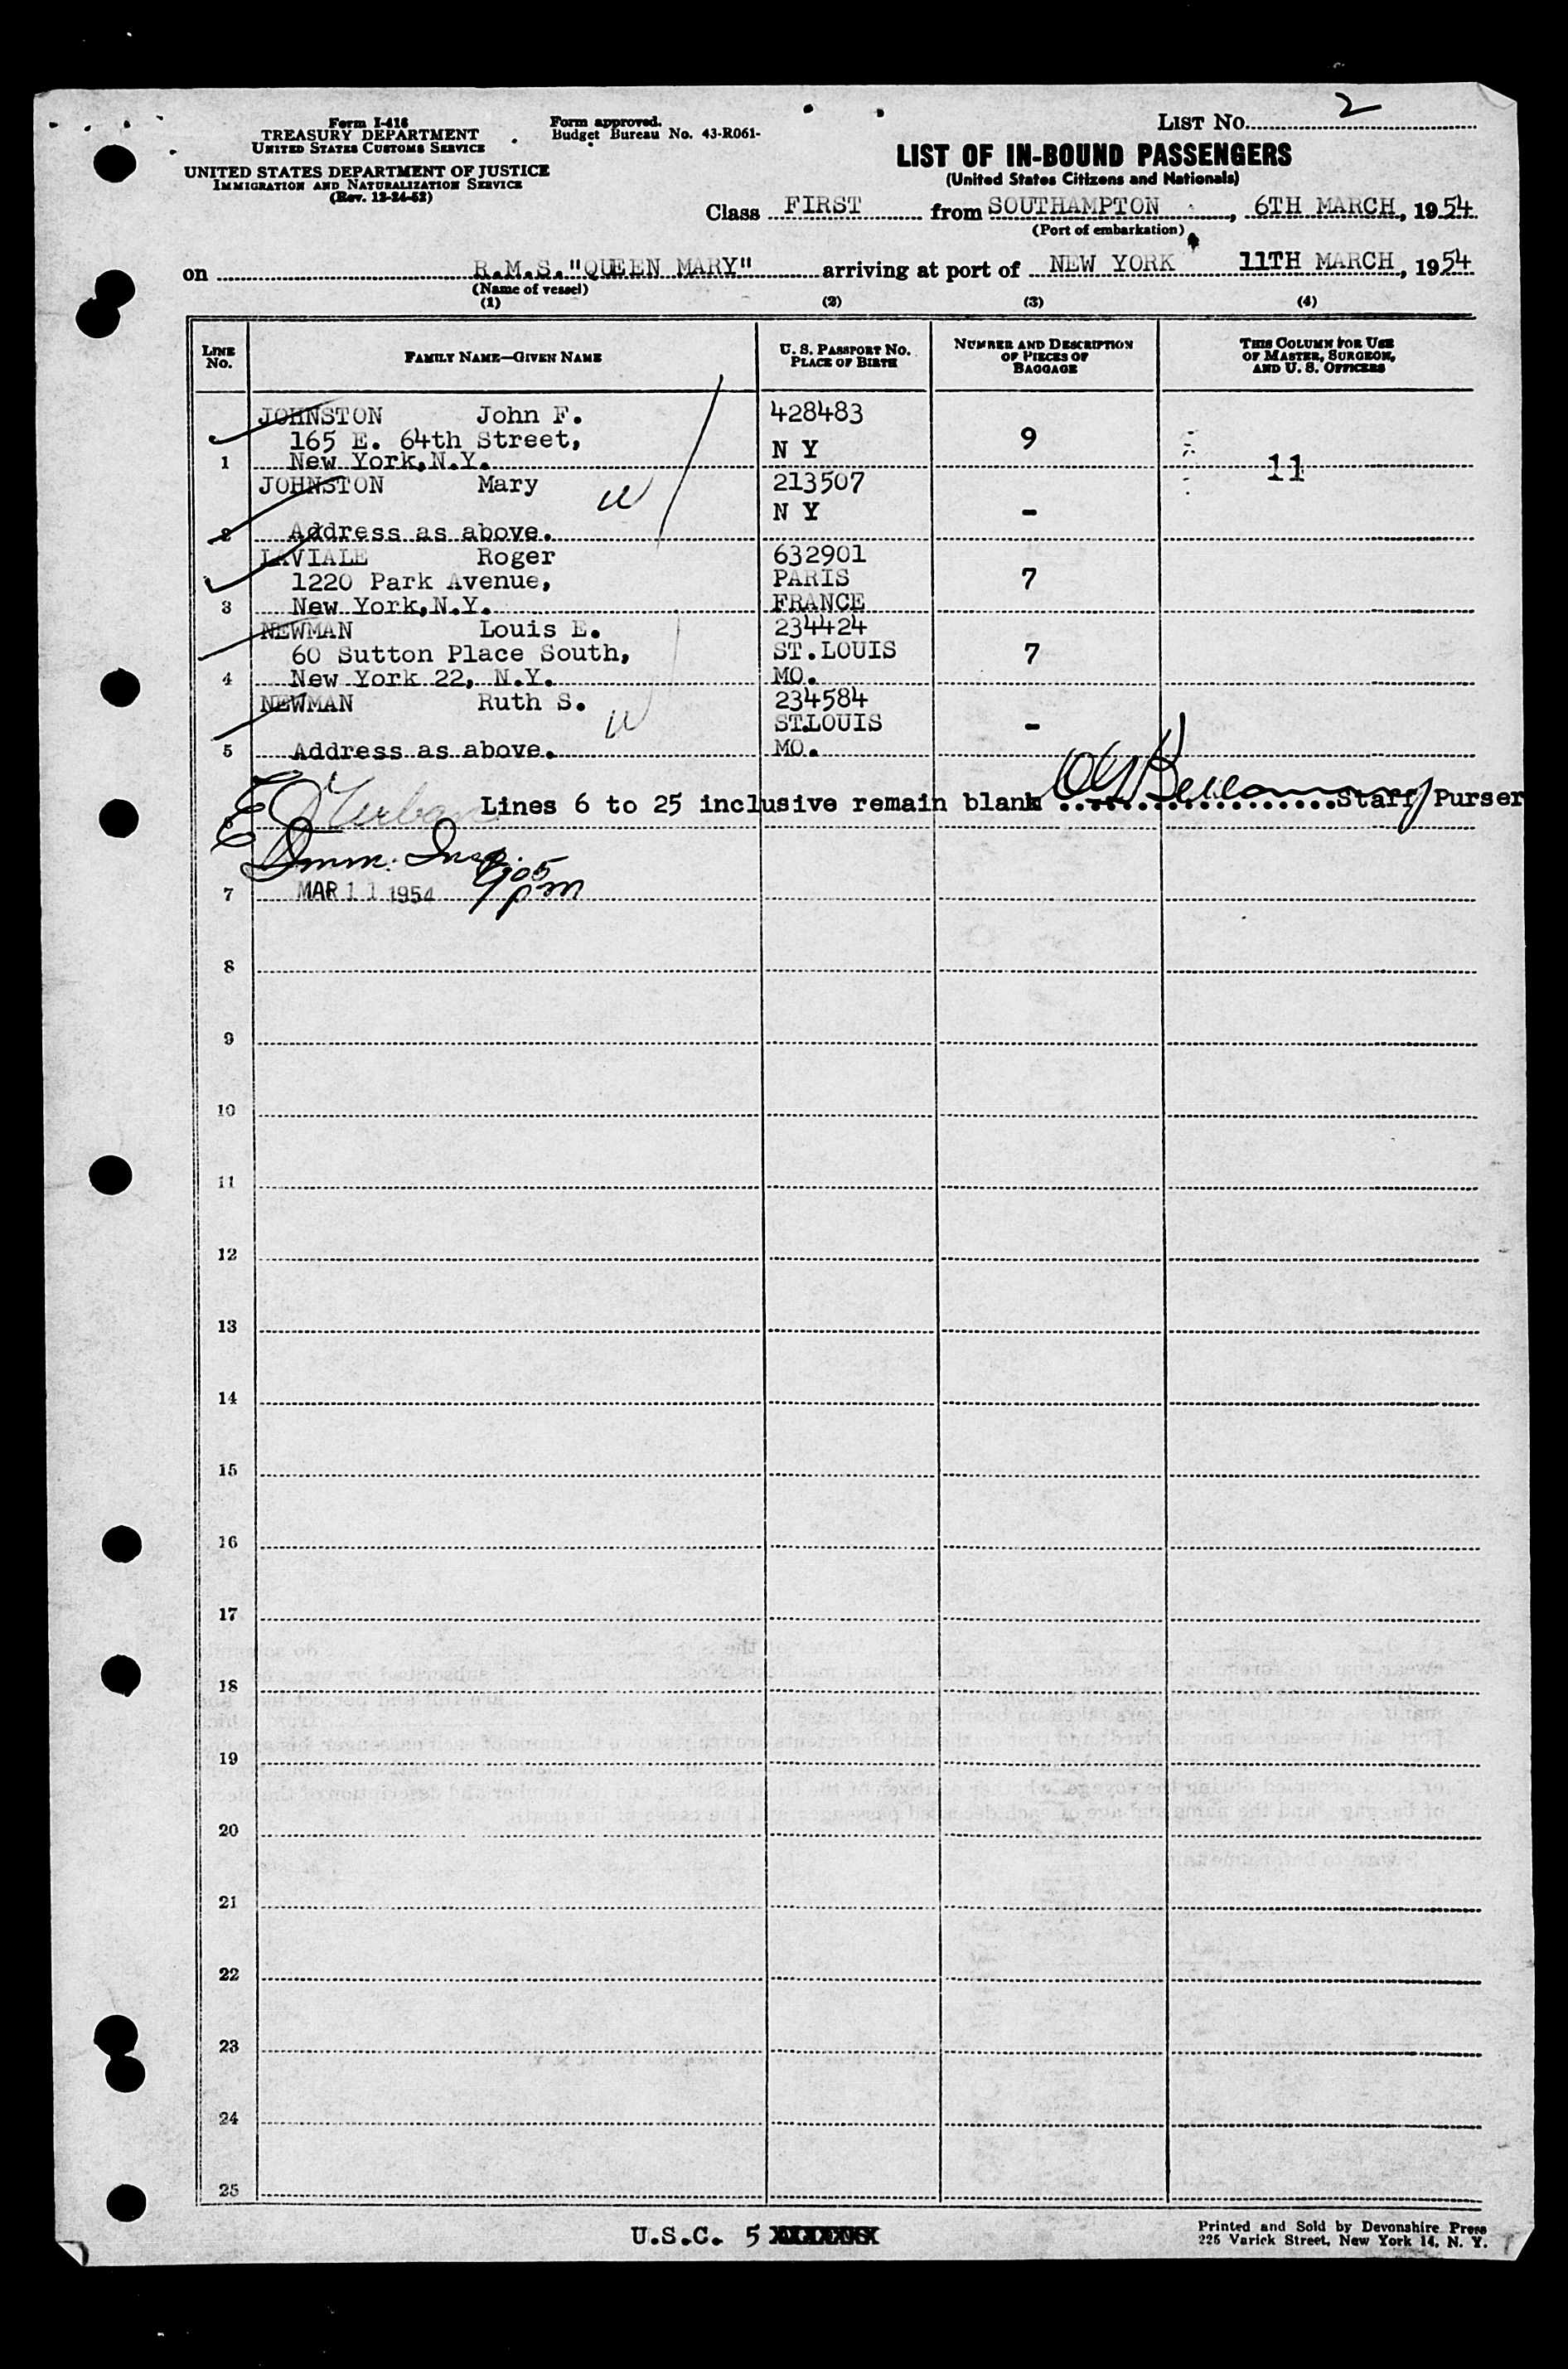 Form I-418
TREASURY DEPARTMENT
UNITED STATES CUSTOMS SERVICE
UNITED STATES DEPARTMENT OF JUSTICE
IMMIGRATION AND NATURALIZATION SERVICE
(Rev. 12-24-52)
Form approved.
Budget Bureau No. 43-R061-
LIST NO. 2
LIST OF IN-BOUND PASSENGERS
(United States Citizens and Nationals)
Class FIRST from SOUTHAMPTON, 6TH MARCH, 1954
(Port of embarkation)
on R.M.S."QUEEN MARY" arriving at port of NEW YORK 11TH MARCH, 1954
(Name of vessel)
(1) (2) (3) (4)
LINE NO. FAMILY NAME—GIVEN NAME U. S. PASSPORT NO. PLACE OF BIRTH NUMBER AND DESCRIPTION OF PIECES OF BAGGAGE THIS COLUMN FOR USE OF MASTER, SURGEON, AND U. S. OFFICERS
JOHNSTON John F. 428483
165 E. 64th Street, N Y 9
1 New York, N.Y. 11
JOHNSTON Mary 213507
N Y -
2 Address as above.
LAVIALE Roger 632901
1220 Park Avenue, PARIS 7
3 New York, N.Y. FRANCE
NEWMAN Louis E. 234424
60 Sutton Place South, ST.LOUIS 7
4 New York 22, N.Y. MO.
NEWMAN Ruth S. 234584
ST.LOUIS -
5 Address as above. MO.
6 Lines 6 to 25 inclusive remain blank Staff Purser
Imm. Insp.
7 MAR 11 1954 pm
8
9
10
11
12
13
14
15
16
17
18
19
20
21
22
23
24
25
U.S.C. 5
Printed and Sold by Devonshire Press
225 Varick Street, New York 14, N. Y.